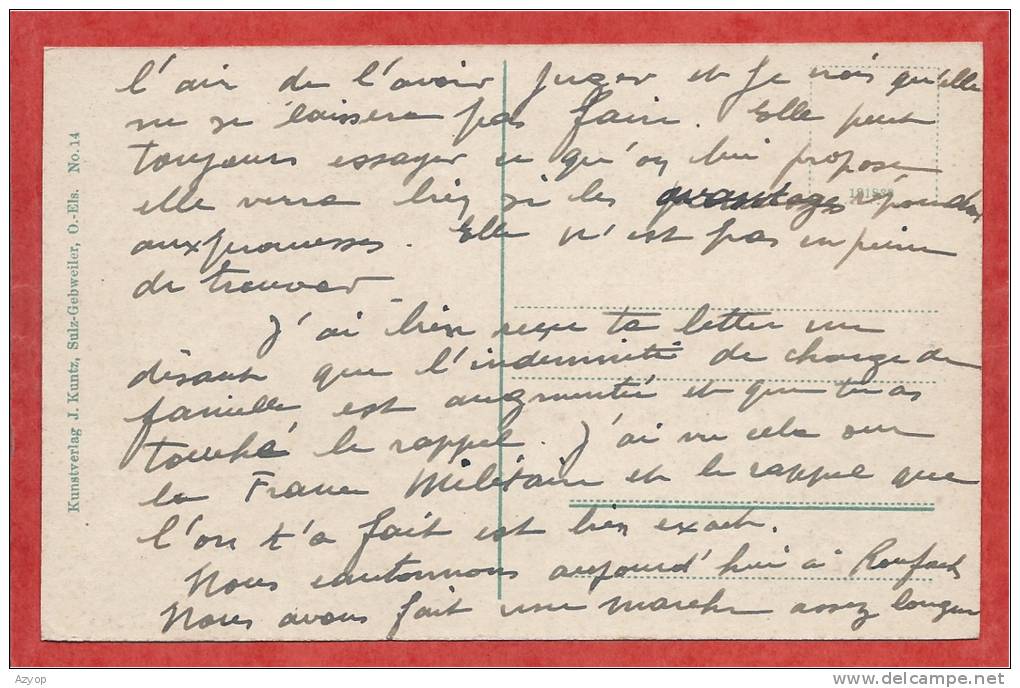 l'air de l'avoir juger et je vois qu'elle
ne se laissera pas faire. Elle peut
toujours essayer ce qu'on lui propose
elle verra bien si les avantages répondent
aux promesses. Elle n'est pas en peine
de trouver
J'ai bien reçu ta lettre me
disant que l'indemnité de charge de
famille est augmentée et que tu as
touché le rappel. J'ai vu cela sur
la France Militaire et le rappel que
l'on t'a fait est bien exact.
Nous cantonnons aujourd'hui à Roufach
Nous avons fait une marche assez longue
Kunstverlag J. Kuntz, Sulz-Gebweiler, O.-Els. No. 14
Azyop
delcampe.net